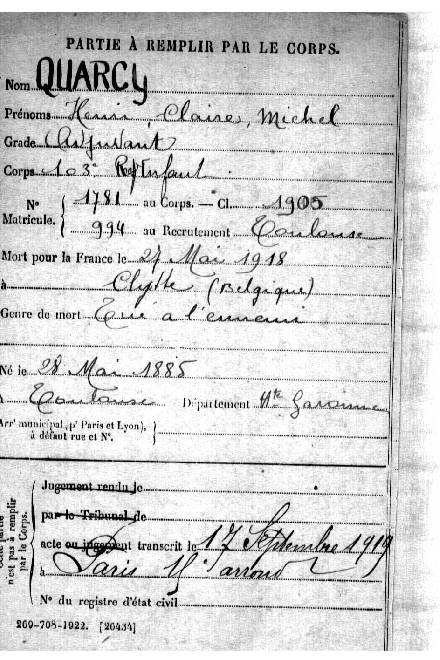 PARTIE À REMPLIR PAR LE CORPS.
Nom QUARCY
Prénoms Henri, Claire, Michel
Grade Adjudant
Corps 103e Regt Infant
N° 1781 au Corps. — Cl. 1905
Matricule. 994 au Recrutement Toulouse
Mort pour la France le 27 Mai 1918
à Clytte (Belgique)
Genre de mort Tué a l'ennemi
Né le 28 Mai 1885
à Toulouse Département Hte Garonne
Arrt municipal (pr Paris et Lyon),
à défaut rue et N°.
Cette partie n'est pas à remplir par le Corps.
Jugement rendu le
par le Tribunal de
acte ou jugement transcrit le 17 Septembre 1919
à Paris
N° du registre d'état civil
269-708-1922. [26434]